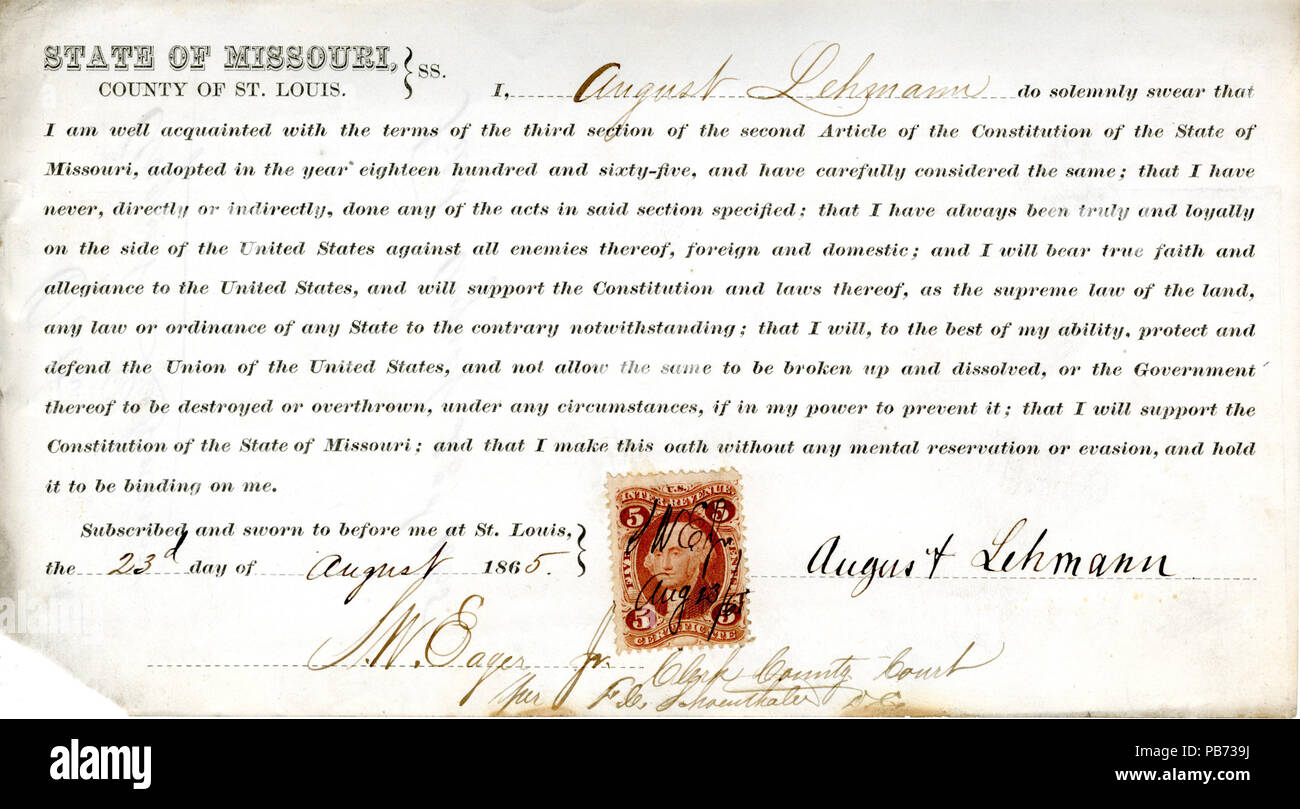 STATE OF MISSOURI, } SS.
COUNTY OF ST. LOUIS.
I, August Lehmann do solemnly swear that
I am well acquainted with the terms of the third section of the second Article of the Constitution of the State of
Missouri, adopted in the year eighteen hundred and sixty-five, and have carefully considered the same; that I have
never, directly or indirectly, done any of the acts in said section specified; that I have always been truly and loyally
on the side of the United States against all enemies thereof, foreign and domestic; and I will bear true faith and
allegiance to the United States, and will support the Constitution and laws thereof, as the supreme law of the land,
any law or ordinance of any State to the contrary notwithstanding; that I will, to the best of my ability, protect and
defend the Union of the United States, and not allow the same to be broken up and dissolved, or the Government
thereof to be destroyed or overthrown, under any circumstances, if in my power to prevent it; that I will support the
Constitution of the State of Missouri; and that I make this oath without any mental reservation or evasion, and hold
it to be binding on me.
Subscribed and sworn to before me at St. Louis, }
the 23d day of August 1865.
U.S.
INTER. REVENUE
5 5
FIVE CENTS
5 5
CERTIFICATE
S W E Jr
Aug 23/65
August Lehmann
S. W. Eager Jr. Clerk County Court
per F. C. Shoenthaler D.C.
alamy
a
alamy
Image ID: PB739J
www.alamy.com